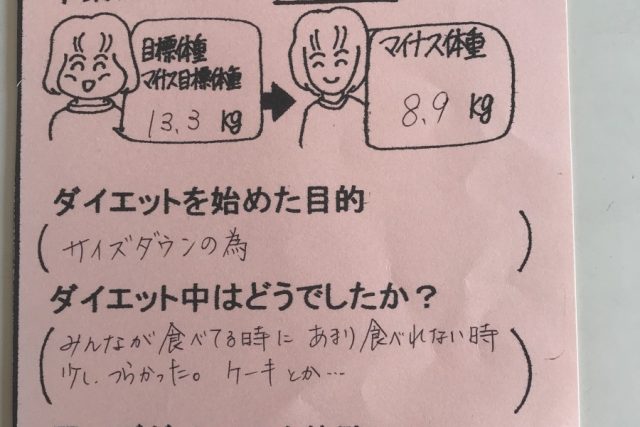 目標体重
マイナス目標体重
13.3 kg
マイナス体重
8.9 kg
ダイエットを始めた目的
サイズダウンの為
ダイエット中はどうでしたか？
みんなが食べてる時に あまり食べれない時
少し、つらかった。 ケーキとか…